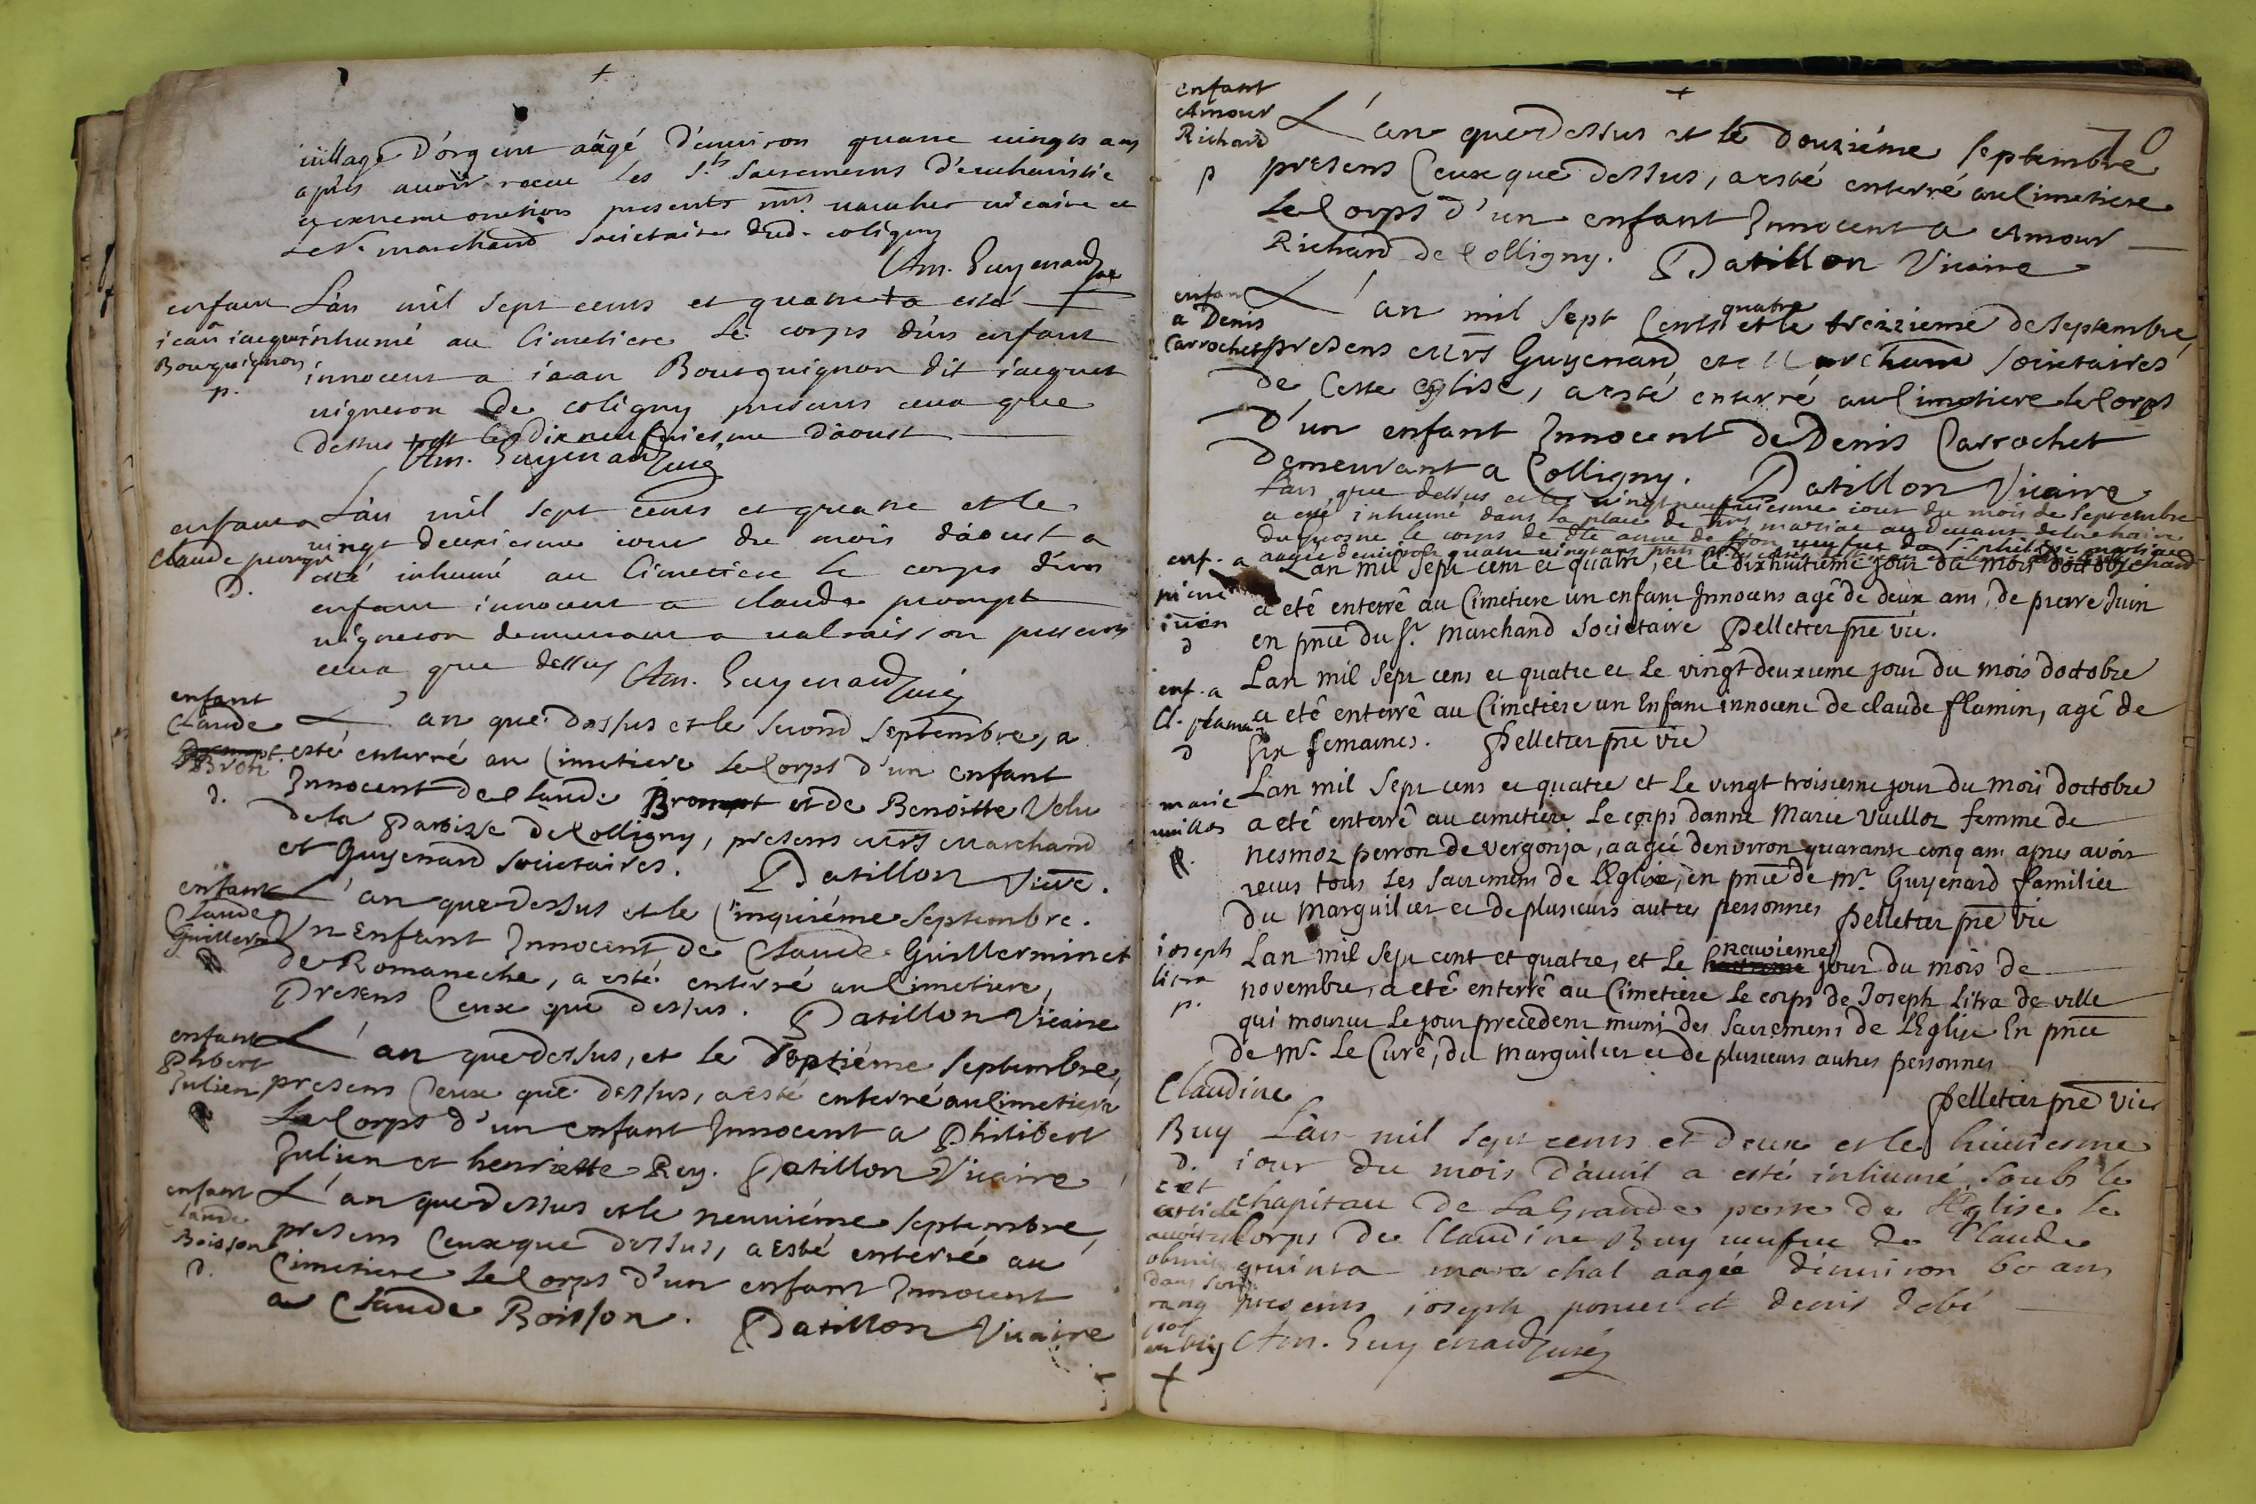 village D'orgent aâgé D'environ quatre vingts ans
apres avoir receu les Sts Sacremens D'eucharistie
et extreme onction presents mrs vacuher vicaire et
le Sr marchand societaire dud. coligny
Am. Guyenard curé
enfant
jean jacques
Bourguignon
p.
Lan mil sept cents et quatre a esté
inhumé au Cimetiere Le corps d'un enfant
innocent a jean Bourguignon dit jacquet
vigneron de coligny presents ceux que
dessus le dix neufviesme d'aoust
Am. Guyenard curé
enfant a
Claude prompt
D.
Lan mil sept cents et quatre et le
vingt deuxiesme jour du mois d'aoust a
esté inhumé au Cimetiere le corps d'un
enfant innocent a claude prompt
vigneron demeurant a valraisson presents
ceux que dessus Am. Guyenard curé
enfant
Claude
Bron
D.
L'an que dessus et le second septembre, a
esté enterré au Cimetiere Le Corps d'un enfant
Innocent de Claude Brompt et de Benoitte Velu
de la Paroisse de Colligny, presens mrs Marchand
et Guyenard societaires. Patillon vicre.
enfant
Claude
Guillerm
L'an que dessus et le Cinquiéme septembre.
Un Enfant Innocent de Claude Guillerminet
de Romaneche, a esté enterré au Cimetiere,
Presens Ceux que dessus. Patillon Vicaire
enfant
Phibert
Julien
L'an que dessus, et le septiéme septembre,
presens Ceux que dessus, a esté enterré au Cimetiere
Le Corps d'un enfant Innocent a Philibert
Julien et henriette Rey. Patillon Vicaire
enfant
Claude
Boisson
D.
L'an que dessus et le neuviéme septembre,
presens Ceux que dessus, a Esté enterré au
Cimetiere Le Corps d'un enfant Innocent
a Claude Boisson. Patillon Vicaire
70
enfant
Amour
Richard
p
L'an que dessus et le douziéme septembre
presens Ceux que dessus, a esté enterré au Cimetiere
Le Corps d'un enfant Innocent a Amour
Richard de Colligny. Patillon Vicaire
enfan
a Denis
Carrochet
L'an mil sept Cents quatre et le treizieme de septembre,
presens Mrs Guyenard et Marchand societaires
de Cette Eglise, a esté enterré au Cimetiere le Corps
d'un enfant Innocent de Denis Carrochet
demeurant a Colligny. Patillon Vicaire
Lan que dessus et le vingt neufviesme jour du mois de Septembre
a esté inhumé dans la place de mrs mariae au devant de la chaire
du prosne le corps de
aagée d'environ quatre vingt ans
enf. a
pierre
iuen
d
Lan mil sept cent et quatre, et le dixhuitieme jour du mois doctobre
a etê enterrê au Cimetiere un enfant Innocens agê de deux ans, de pierre Juin
en pnce du Sr. Marchand Societaire Pelletier pre vic.
enf. a
Cl. flamin
d
Lan mil sept cens et quatre et Le vingt deuxieme jour du mois doctobre
a etê enterrê au Cimetiere un Enfant innocent de claude flamin, agê de
six semaines. Pelletier pre vic
marie
vuillot
p.
Lan mil sept cens et quatre et Le vingt troisieme jour du mois doctobre
a etê enterrê au cimetiere Le corps danne Marie Vuillot femme de
nesmoz perron de vergonja, aagée denviron quarante cinq ans apres avoir
recus tous Les sacremens de LEglise, en pnce de Mr. Guyenard familier
du Marguilier et de plusieurs autres personnes Pelletier pre vic
joseph
litra
p.
Lan mil sept cent et quatre, et Le neuvieme jour du mois de
novembre, a etê enterrê au Cimetiere Le corps de Joseph Litra de ville
qui mourut Le jour precedent muni des sacremens de LEglise En pnce
de Mr. Le Curê, du Marguilier et de plusieurs autres personnes
Pelletier pre vic
Claudine
Buy
D.
cet
article
avoit esté
obmis
dans son
rang
par
oubly
Lan mil sept cents et deux et le huitiesme
jour du mois d'avril a esté inhumé soubs le
chapitau de la Grande porte de l'Eglise le
Corps de Claudine Buy veufve de Claude
quinsa mareschal aagée d'environ 60 ans
presents joseph poncet et denis debé
Am. Guyenard curé